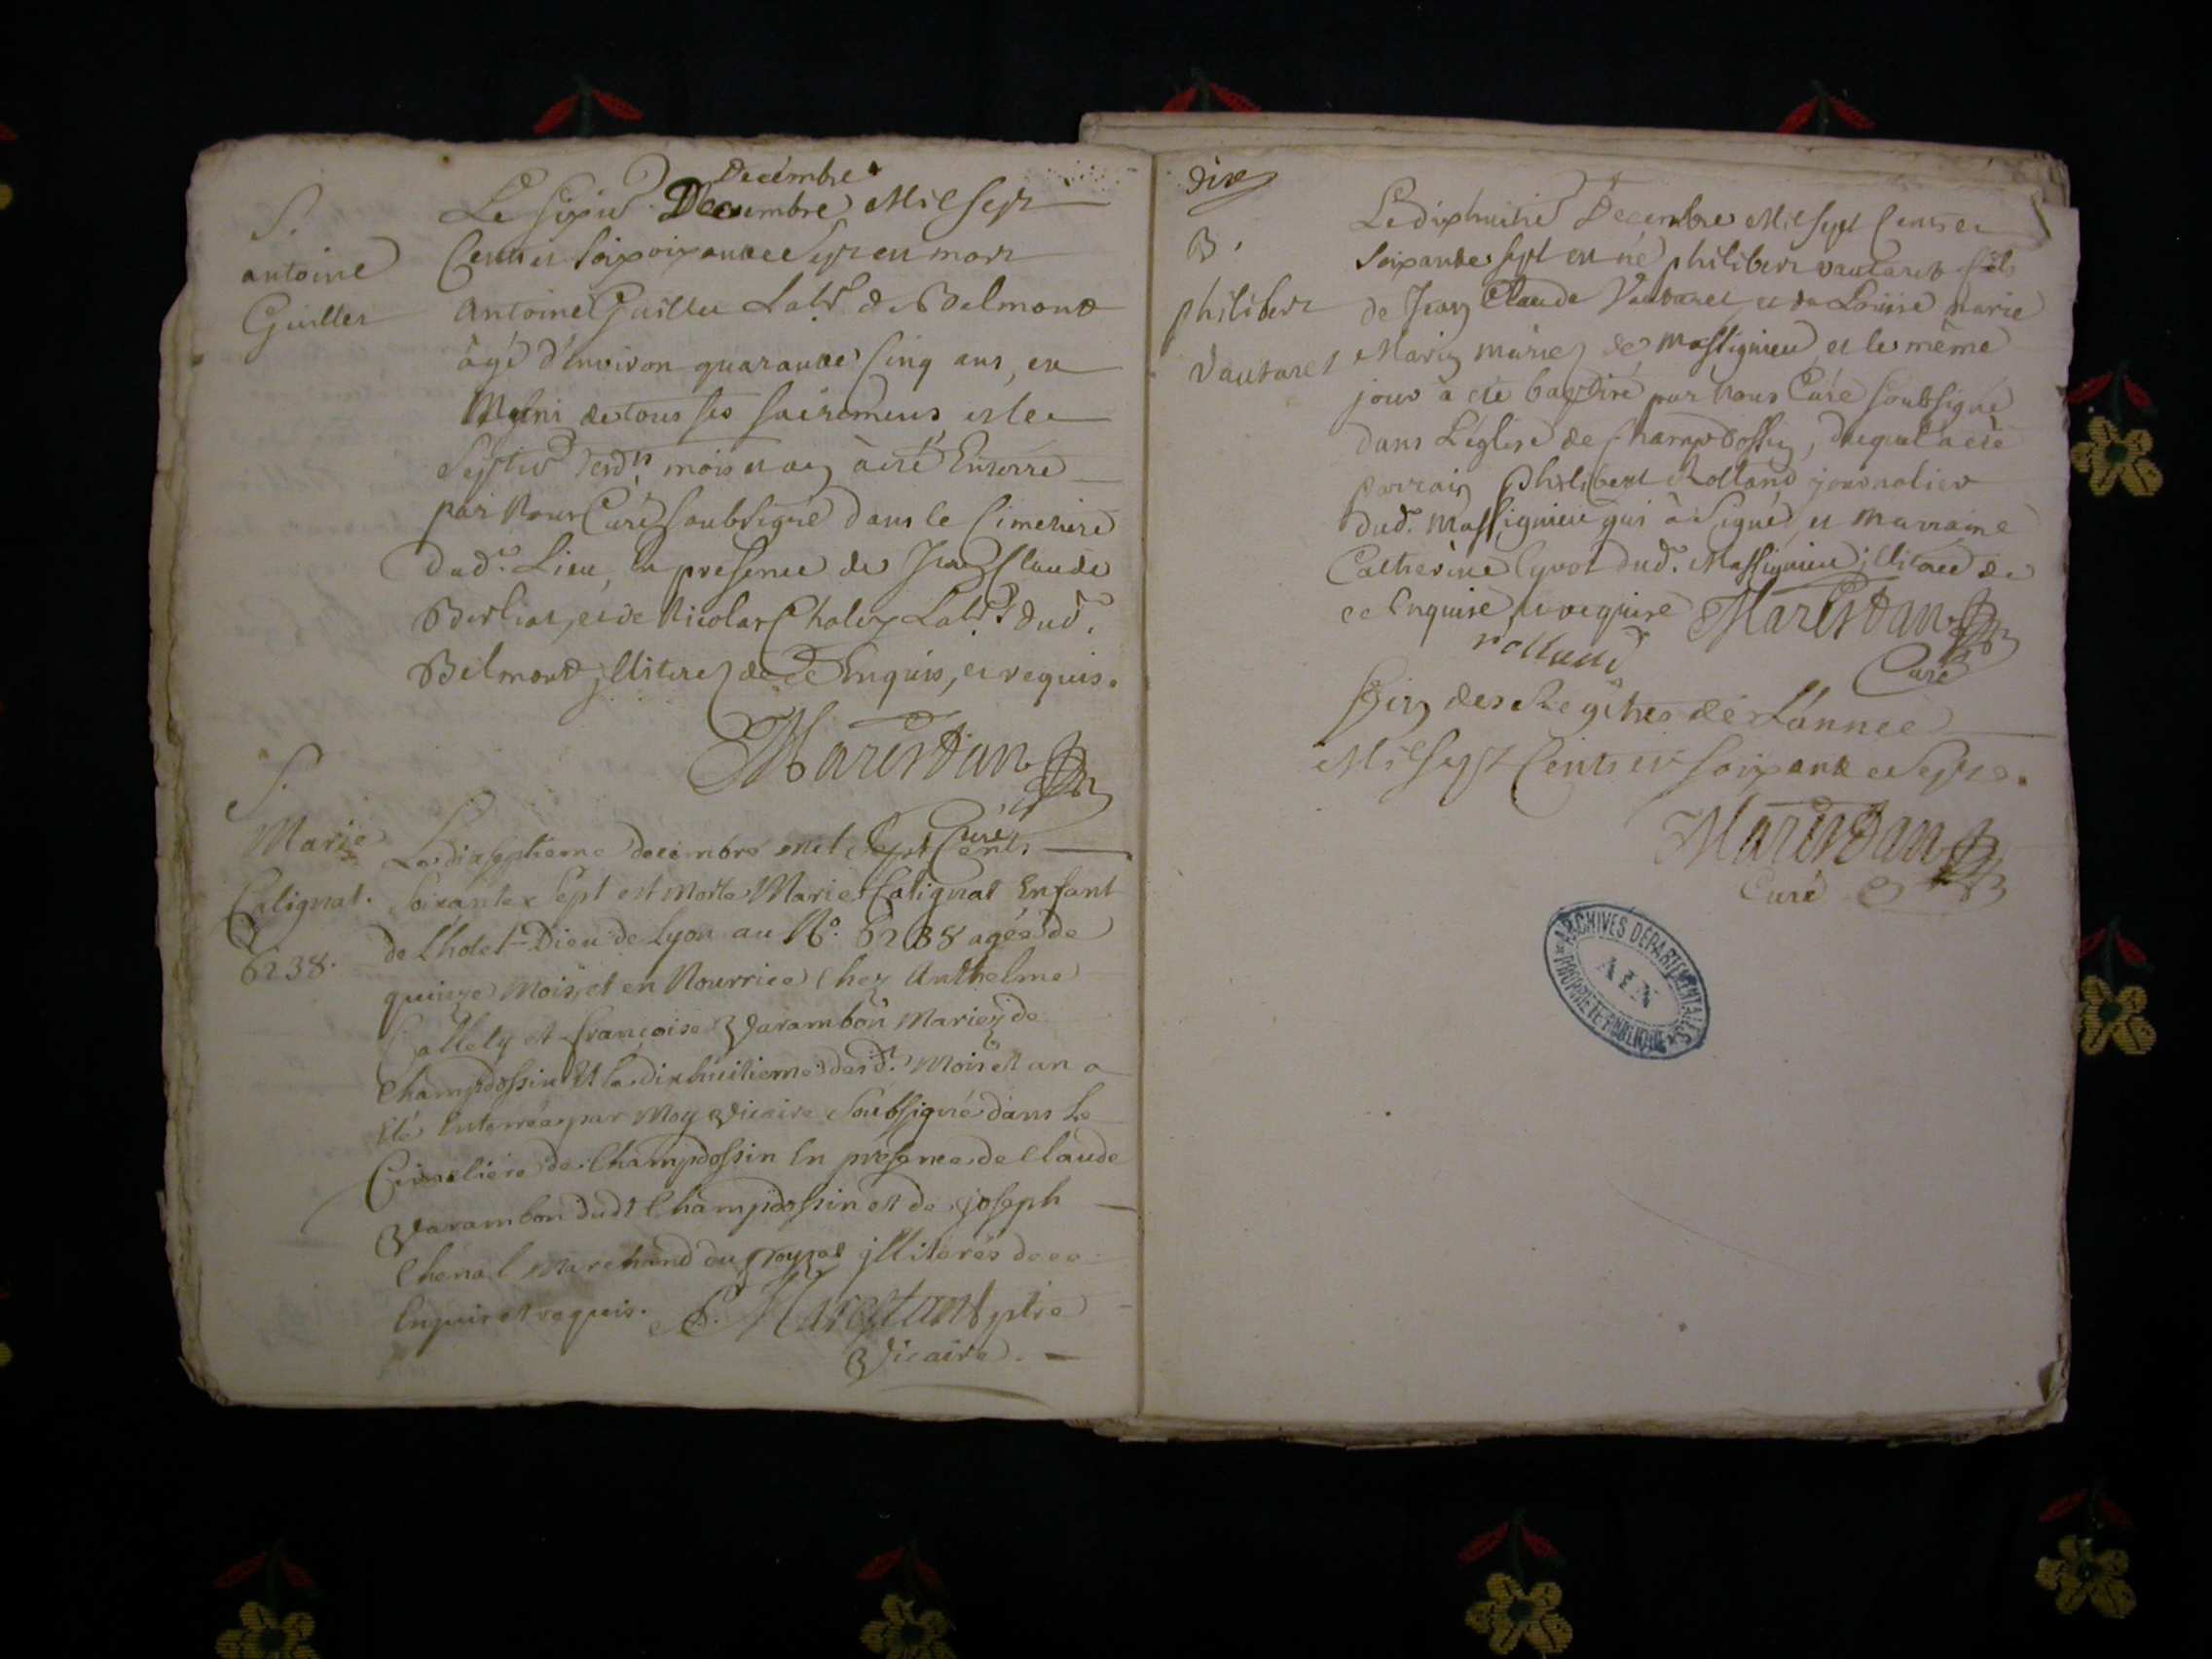 Decembre
S.
antoine
Guiller
Le sixie Decembre Mil sept
Cents et soixoixante sept est mort
Antoine Guiller Labr. de Belmont
âgé d'environ quarante Cinq ans, et
Muni de tous ses sacremens, et le
Septie desdts mois et an à été Enterré
par Nous Curé soubsigné dans le Cimetiere
dud. Lieu, en presence de Jean Claude
Berliat, et de Nicolas Chaley Labrs dud.
Belmont, jlliterez de ce Enquis, et requis.
Marestan
Curé
S.
Marie
Catignat.
6238.
Le dixseptieme decembre mil Sept Cents
Soixante Sept est morte Marie Catignat Enfant
de L'hotel-Dieu de Lyon au No. 6238 agée de
quinze Mois, et en Nourrice Chez Anthelme
Callely et françoise Varambon Mariez de
Champdossin Et le dixhuitieme desd. Mois et an a
été Enterrée par Moy Vicaire Soubsigné dans Le
Cimetiere de Champdossin En présence de Claude
Varambon dudt Champdossin et de joseph
Chenal Marchand du jlliterés de ce
Enquis et requis. Marestant ptre
Vicaire.
dix
B.
philibert
Vautaret
Le dixhuitie Decembre Mil sept Cents et
soixante sept est né philibert vautaret fils
de Jean Claude Vautaret et de Louise marie
Marin mariez de Massignieu et le même
jour à été baptisé par Nous Curé soubsigné
dans L'église de Champdossin, duquel a été
parrain philibert Rolland journalier
dud. Massignieu qui à signé, et marraine
Catherine dud. Massignieu jlliterée de
ce Enquise, et requise Marestan
rolland
Curé
Fin des Regîtres de L'année
Mil sept Cents et soixante et sept.
Marestan
Curé
ARCHIVES DÉPARTEMENTALES
AIN
PROPRIÉTÉ PUBLIQUE